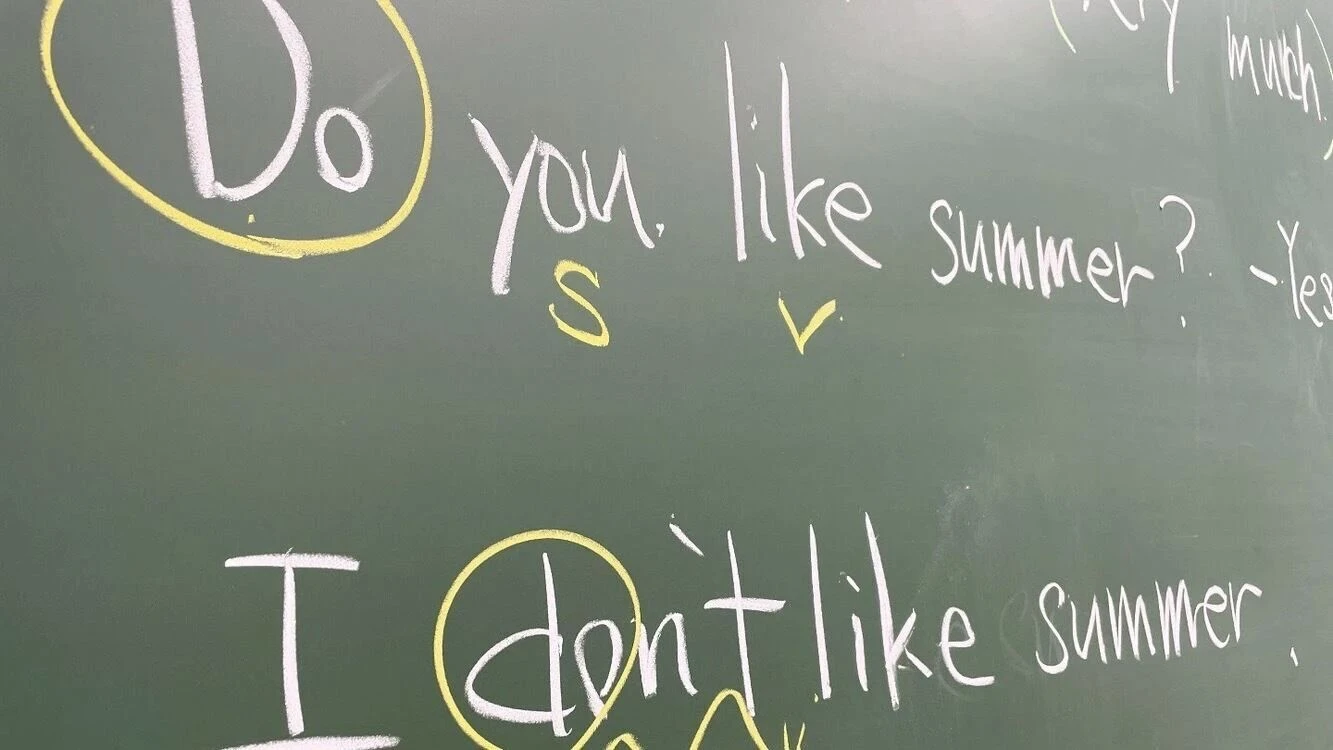 much)
Do you like summer? - Yes
S V
I don't like summer.